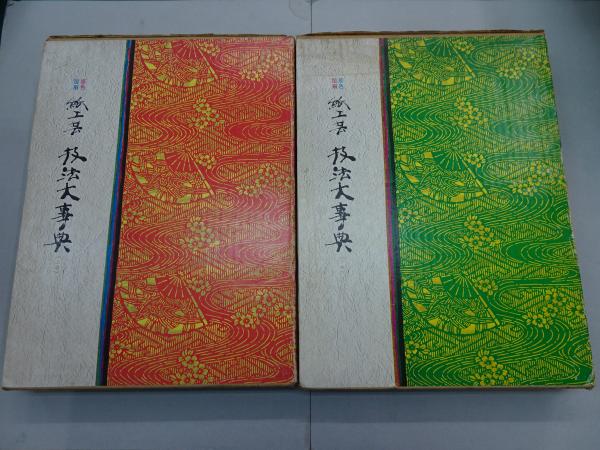 原色
図解
紙工芸 技法大事典
原色
図解
紙工芸 技法大事典